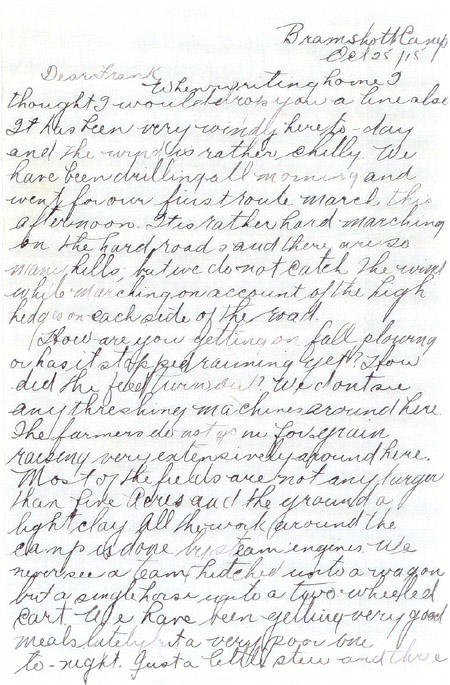 Bramshott Camp
Oct 25/15
Dear Frank
When writing home I
thought I would drop you a line also
It has been very windy here to-day
and the wind is rather chilly. We
have been drilling all morning and
went for our first route march this
afternoon. It is rather hard marching
on the hard roads and there are so
many hills, but we do not catch the wind
while marching on account of the high
hedges on each side of the road.
How are you getting on fall plowing
or has it stopped raining yet? How
did the feed turn out? We dont see
any threshing machines around here.
The farmers do not go in for grain
raising very extensively around here.
Most of the fields are not any larger
than five Acres and the ground a
light clay All the work around the
camp is done by steam engines. We
never see a team hitched unto a wagon
but a single horse unto a two wheeled
cart. We have been getting very good
meals lately but a very poor one
to-night. Just a little stew and three